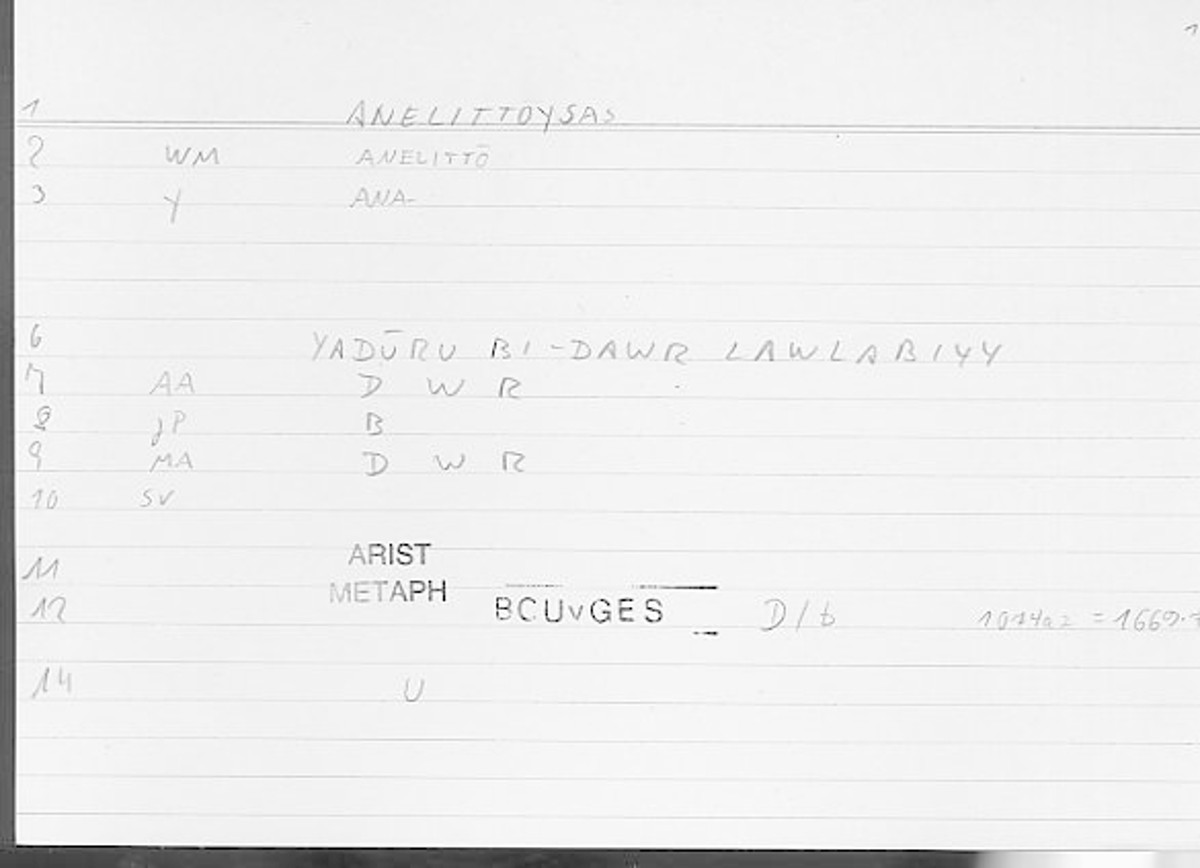 1 ANELITTOYSAS
2 WM ANELITTŌ
3 Y ANA-
6 YADŪRU BI-DAWR LAWLABIYY
7 AA D W R
8 JP B
9 MA D W R
10 SV
ARIST
11
METAPH
12 BCUvGES D/b 1074a2 = 1669.
14 U